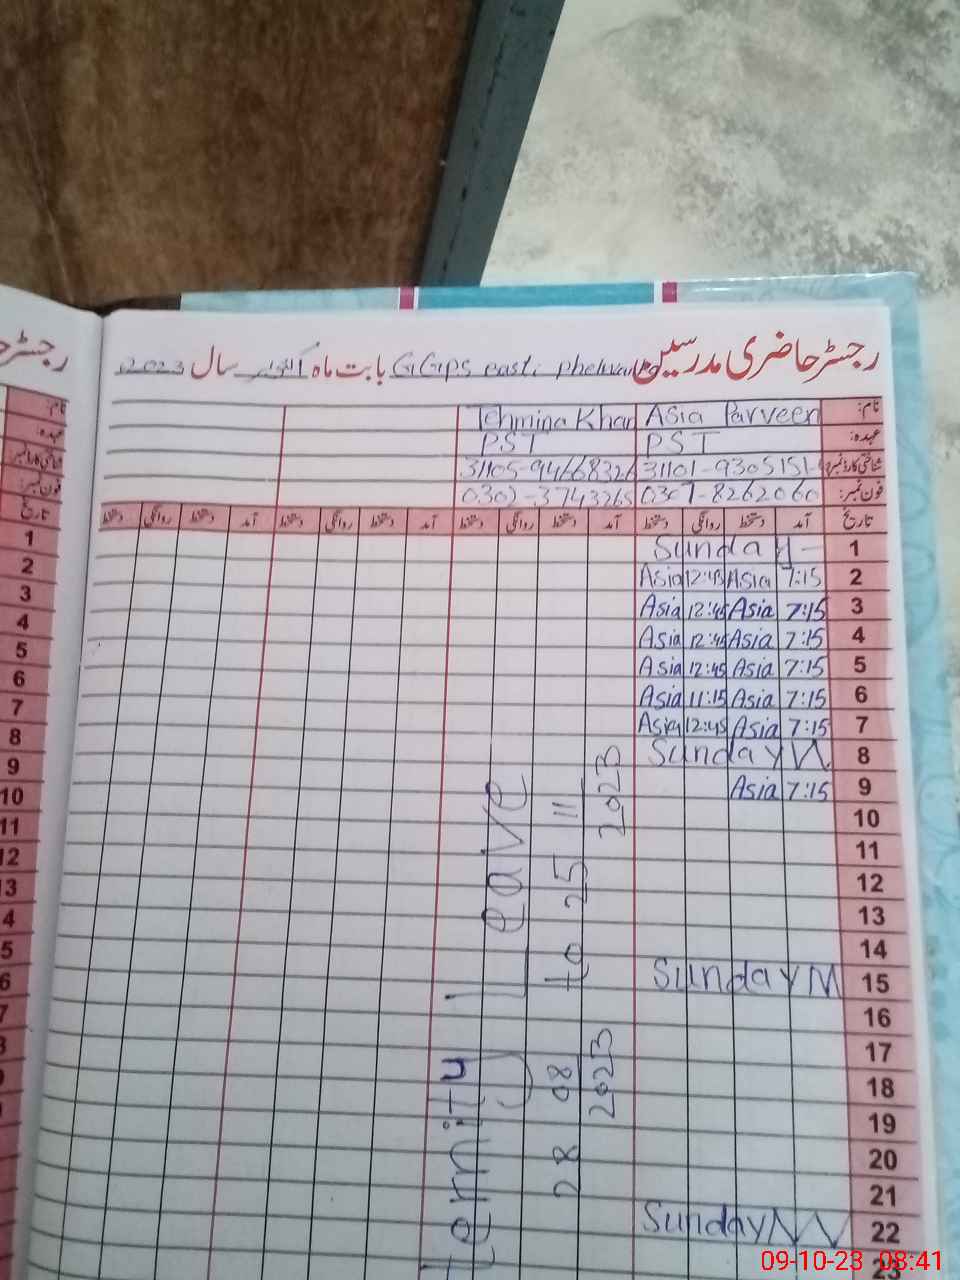 رجسٹر حاضری مدرسین GGPS east, بابت ماہ اکتوبر سال 2023
نام: Asia Parveen Tehmina Khan
عہدہ: PST PST
شناختی کارڈ نمبر: 31101-9305151- 31105-9466832
فون نمبر: 0307-8262060 0302-3743265
تاریخ آمد دستخط روانگی دستخط آمد دستخط روانگی دستخط آمد دستخط روانگی دستخط آمد دستخط روانگی دستخط
1 Sunday
2 7:15 Asia 12:45 Asia
3 7:15 Asia 12:45 Asia
4 7:15 Asia 12:45 Asia
5 7:15 Asia 12:45 Asia
6 7:15 Asia 11:15 Asia
7 7:15 Asia 12:45 Asia
8 Sunday
9 7:15 Asia
10
11
12
13
14
15 Sunday
16
17
18
19
20
21
22 Sunday
23
ternity Leave
28 08 to 25 11
2023 2023
رجسٹر
نام:
عہدہ:
شناختی کارڈ نمبر
فون نمبر:
تاریخ
1
2
3
4
5
6
7
8
9
10
11
12
13
4
5
6
09-10-23 08:41